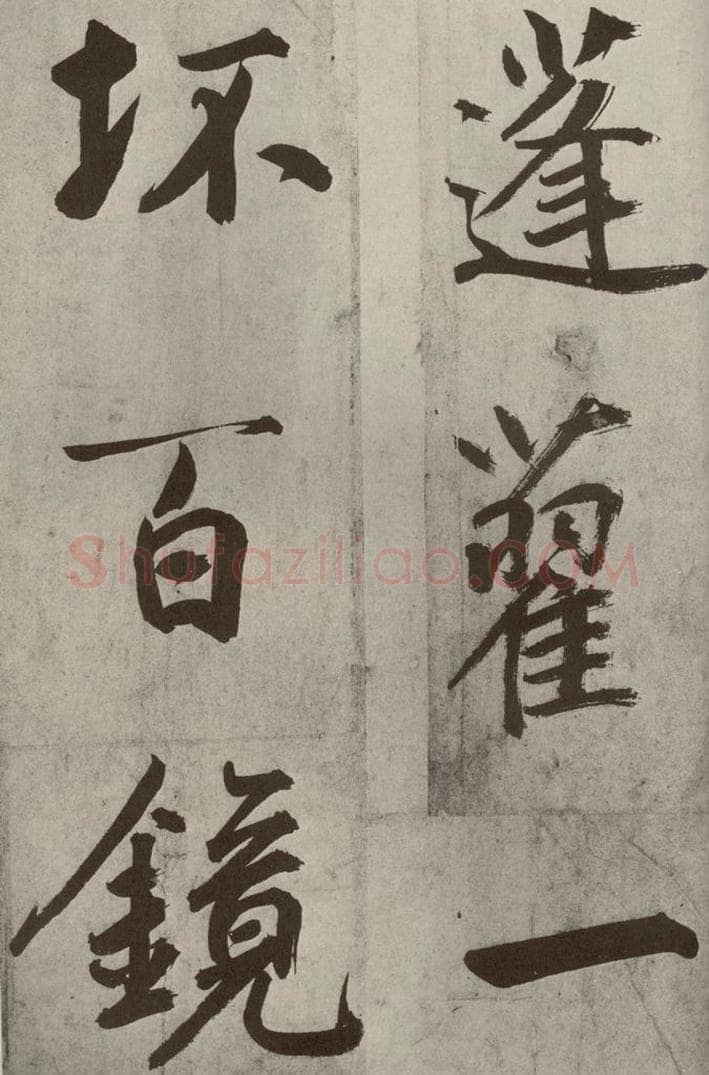 蓬藋一
坏百鏡
Shufaziliao.com